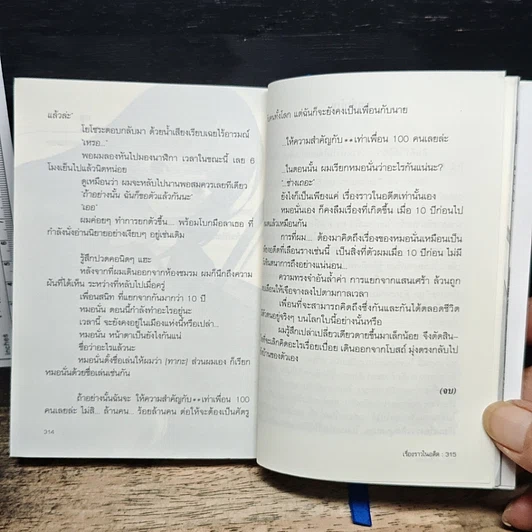 แล้วล่ะ"
โยโซระตอบกลับมา ด้วยน้ำเสียงเรียบเฉยไร้อารมณ์
"เหรอ..."
พอผมลองหันไปมองนาฬิกา เวลาในขณะนี้ เลย 6
โมงเย็นไปแล้วนิดหน่อย
ดูเหมือนว่า ผมจะหลับไปนานพอสมควรเลยทีเดียว
"ถ้าอย่างนั้น ฉันก็ขอตัวแล้วกันนะ"
"เออ"
ผมค่อยๆ ทำการยกตัวขึ้น... พร้อมโบกมือลาเธอ ที่
กำลังนั่งอ่านนิยายอย่างเงียบๆ อยู่เช่นเดิม
รู้สึกปวดคอนิดๆ แฮะ
หลังจากที่ผมเดินออกจากห้องชมรม ผมก็นึกถึงความ
ฝันที่ได้เห็น ระหว่างที่หลับไปเมื่อครู่
เพื่อนสนิท ที่แยกจากกันมากว่า 10 ปี
หมอนั่น ตอนนี้กำลังทำอะไรอยู่นะ
เวลานี้ จะยังคงอยู่ในเมืองแห่งนี้หรือเปล่า..
หมอนั่น หน้าตาเป็นยังไงกันแน่
ชื่อว่าอะไรแล้วนะ
หมอนั่นตั้งชื่อเล่นให้ผมว่า (ทากะ) ส่วนผมเอง ก็เรียก
หมอนั่นด้วยชื่อเล่นเช่นกัน
ถ้าอย่างนั้นฉันจะ ให้ความสำคัญกับ●●เท่าเพื่อน 100
คนเลยล่ะ ไม่สิ... ล้านคน... ร้อยล้านคน ต่อให้จะต้องเป็นศัตรู
314
คนทั้งโลก แต่ฉันก็จะยังคงเป็นเพื่อนกับนาย
...ให้ความสำคัญกับ●●เท่าเพื่อน 100 คนเลยล่ะ
...ในตอนนั้น ผมเรียกหมอนั่นว่าอะไรกันแน่นะ?
"...ช่างเถอะ"
ยังไงก็เป็นเพียงแค่ เรื่องราวในอดีตเท่านั้นเอง
หมอนั่นเอง ก็คงลืมเรื่องที่เกิดขึ้น เมื่อ 10 ปีก่อนไป
แล้วเหมือนกัน
การที่ผม... ต้องมาคิดถึงเรื่องของหมอนั่นเหมือนเป็น
อดีตที่เลือนรางเช่นนี้ เป็นสิ่งที่ตัวผมเมื่อ 10 ปีก่อน ไม่มี
จินตนาการถึงอย่างแน่นอน...
ความทรงจำอันล้ำค่า การแยกจากแสนเศร้า ล้วนถูก
เลยให้เจือจางลงไปตามกาลเวลา
เพื่อนที่จะสามารถคิดถึงซึ่งกันและกันได้ตลอดชีวิต
อยู่จริงๆ บนโลกใบนี้อย่างนั้นหรือ
ผมรู้สึกเปล่าเปลี่ยวเดียวดายขึ้นมาเล็กน้อย จึงตัดสิน-
จะเลิกคิดอะไรเรื่อยเปื่อย เดินออกจากโบสถ์ มุ่งตรงกลับไป
บ้านของตัวเอง
(จบ)
เรื่องราวในอดีต : 315